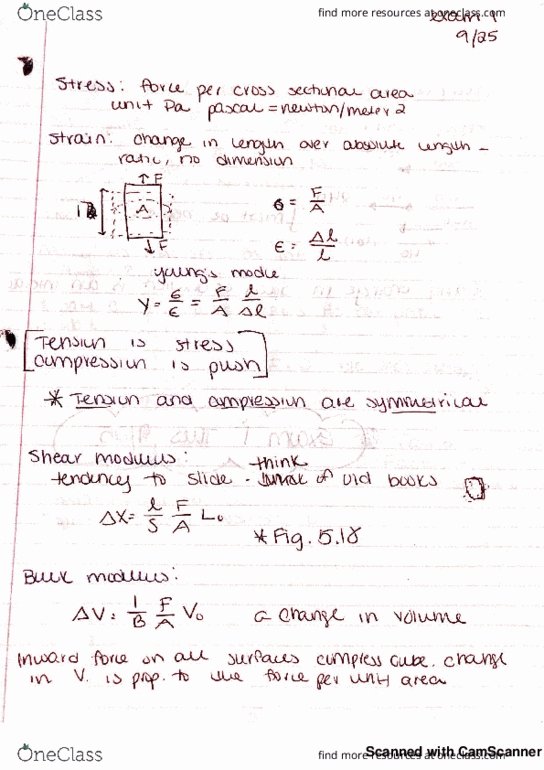 OneClass
find more resources at oneclass.com
Exam 1
9/25
Stress: force per cross sectional area
unit Pa pascal = newton/meter 2
Strain: change in length over absolute length -
ratio, no dimension
↑F
A
↓F
σ = F/A
ϵ = Δl/l
young's module
Y = σ/ϵ = F/A l/Δl
[Tension is stress
compression is push]
* Tension and compression are symmetrical
Shear modulus: think
tendency to slide - of old books
ΔX = l/S F/A L₀
* Fig. 5.18
Bulk modulus:
ΔV = 1/B F/A V₀ a change in volume
Inward force on all surfaces compress cube. change
in V. is prop. to the force per unit area
OneClass
find more resources at oneclass.com
Scanned with CamScanner